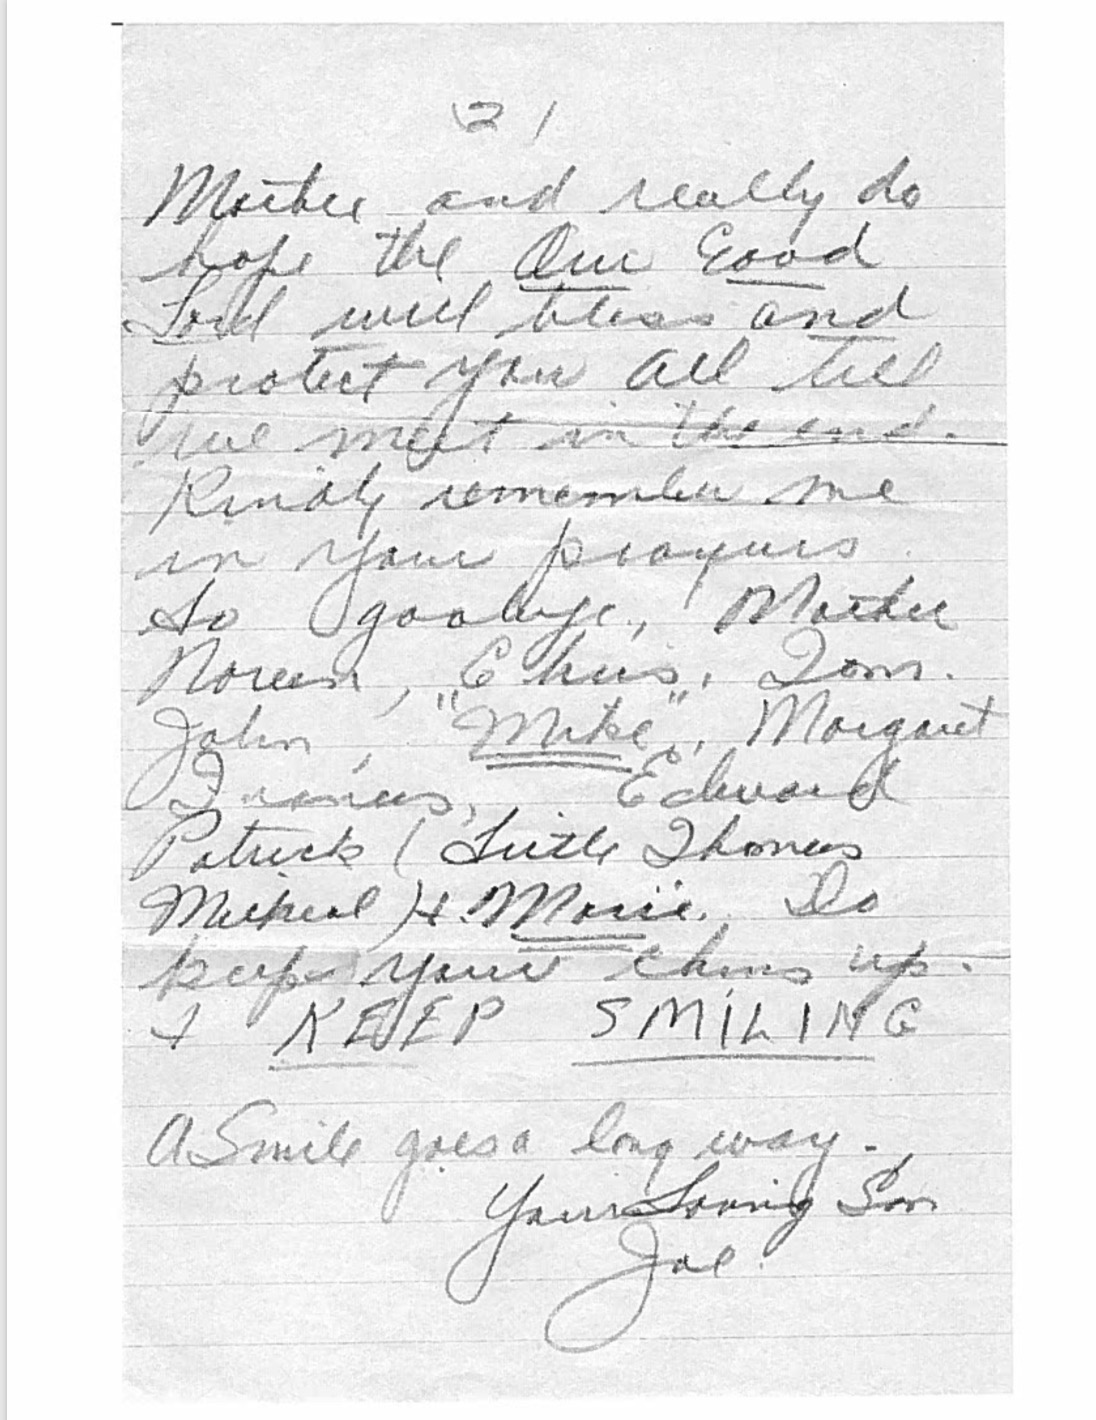 (2)
Mother and really do
hope the Our Good
Lord will bless and
protect you all till
we meet in the end.
Kindly remember me
in your prayers.
So goodbye, Mother
Noreen, "Chris, Tom.
John, "Mike", Margaret
Francis, Edward
Patrick (Little Thomas
Micheal) & Marie. Do
keep your chins up.
& KEEP SMILING
A Smile goes a long way.
Your Loving Son
Joe.